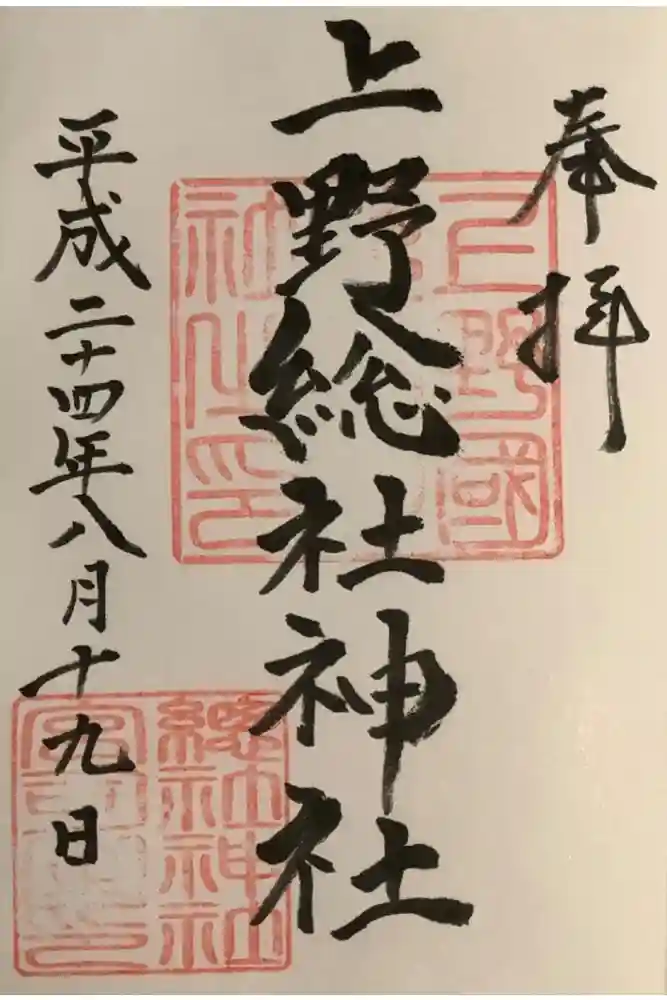 奉拝
上野総社神社
平成二十四年八月十九日
上野國
社之印
總社神社